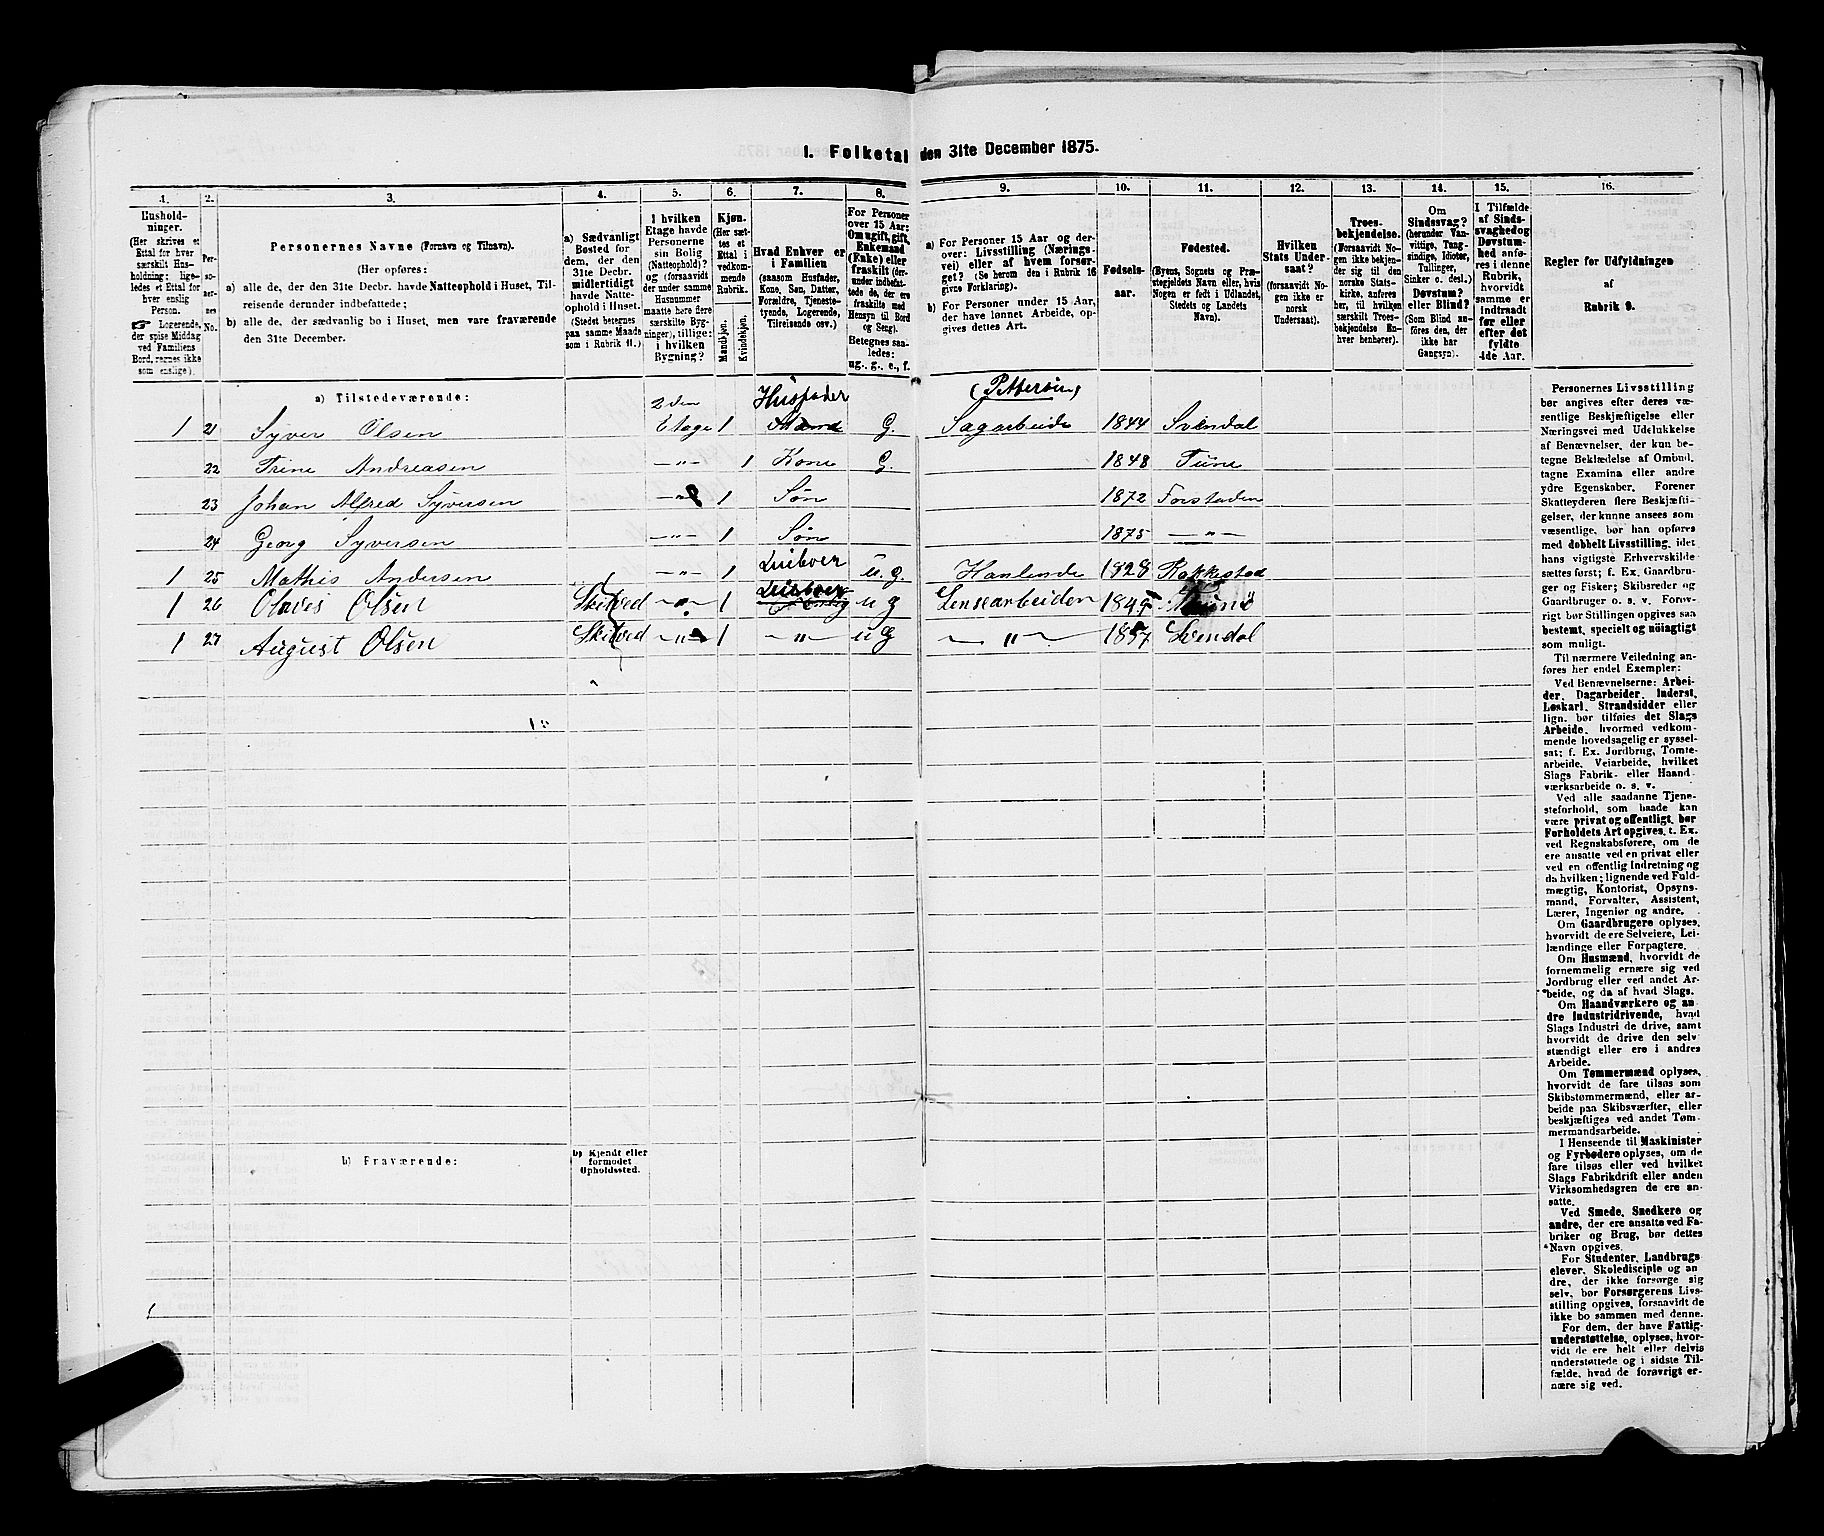 1. Folketal den 31te December 1875.
1. 2. 3. 4. 5. 6. 7. 8. 9. 10. 11. 12. 13. 14. 15. 16.
Hushold-
ninger.
(Her skrives et
Ettal for hver
særskilt Hus-
holdning; lige-
ledes et Ettal for
hver enslig
Person.
☞ Logerende,
der spise Middag
ved Familiens
Bord, regnes ikke
som enslige).
Per-
so-
ner-
nes
No.
Personernes Navne (Fornavn og Tilnavn).
(Her opføres:
a) alle de, der den 31te Decbr. havde Natteophold i Huset, Til-
reisende derunder indbefattede;
b) alle de, der sædvanlig bo i Huset, men vare fraværende
den 31te December.
a) Sædvanligt
Bosted for
dem, der den
31te Decbr.
midlertidigt
havde Natte-
ophold i Huset.
(Stedet betegnes
paa samme Maade
som i Rubrik 11.)
I hvilken
Etage havde
Personerne
sin Bolig
(Natteophold)?
og (forsaavidt
der under samme
Husnummer
maatte høre flere
særskilte Byg-
ninger), tillige:
i hvilken
Bygning?
Kjøn.
(Her sæt-
tes et
Ettal i
vedkom-
mende
Rubrik.
Mandkjøn.
Kvindekjøn.
Hvad Enhver er
i Familien
(saasom Husfader,
Kone, Søn, Datter,
Forældre, Tjeneste-
tyende, Logerende,
Tilreisende osv.)
For Personer
over 15 Aar:
Om ugift, gift,
Enkemand
(Enke) eller
fraskilt (der-
under indbefat-
tede de, der ere
fraskilte med
Hensyn til Bord
og Seng).
Betegnes saa-
ledes:
ug., g., e., f.
a) For Personer 15 Aar og der-
over: Livsstilling (Nærings-
vei) eller af hvem forsør-
get? (Se herom den i Rubrik 16
givne Forklaring).
b) For Personer under 15 Aar,
der have lønnet Arbeide, op-
gives dettes Art.
Fødsels-
aar.
Fødested.
(Byens, Sognets og Præ-
stegjeldets Navn eller, hvis
Nogen er født i Udlandet,
Stedets og Landets
Navn).
Hvilken
Stats Under-
saat?
(forsaavidt No-
gen ikke er
norsk
Undersaat).
Troes-
bekjendelse.
(Forsaavidt No-
gen ikke bekjen-
der sig til den
norske Stats-
kirke, anføres
her, til hvilken
særskilt Troes-
bekjendelse En-
hver henhører).
Om
Sindssvag?
(herunder Van-
vittige, Tung-
sindige, Idioter,
Tullinger,
Sinker o. desl.)
Døvstum?
eller Blind?
(Som Blind an-
føres den, der
ikke har
Gangsyn).
I Tilfælde
af Sinds-
svaghed og
Døvstum-
hed anfø-
res i denne
Rubrik,
hvorvidt
samme er
indtraadt
før eller
efter det
fyldte
4de Aar.
Regler for Udfyldningen
af
Rubrik 9.
a) Tilstedeværende:
2den Husfader
1 21 Syver Olsen Etage 1 G. Sagarbeide 1844 Svendal
22 Trine Andreasen —"— 1 Kone G. 1848 Tune
23 Johan Alfred Syversen —"— 1 Søn 1872 Forstaden
24 Georg Syversen —"— 1 Søn 1875 —"—
1 25 Mathis Andersen —"— 1 u. g. 1828 Rakkestad
1 26 Olsen Skibtved —"— 1 u g Lensearbeider
1 27 August Olsen Skibtved —"— 1 —"— u g —"— 1857 Svendal
b) Fraværende:
b) Kjendt eller
formodet
Opholdssted.
Personernes Livsstilling
bør angives efter deres væ-
sentlige Beskjæftigelse eller
Næringsvei med Udelukkelse
af Benævnelser, der kun be-
tegne Beklædelse af Ombud,
tagne Examina eller andre
ydre Egenskaber. Forener
Skatteyderen flere Beskjæfti-
gelser, der kunne ansees som
væsentlige, bør han opføres
med dobbelt Livsstilling, idet
hans vigtigste Erhvervskilde
sættes først; f. Ex. Gaardbru-
ger og Fisker; Skibsreder og
Gaardbruger o. s. v. Forøv-
rigt bør Stillingen opgives saa
bestemt, specielt og nøiagtigt
som muligt.
Til nærmere Veiledning an-
føres her endel Exempler:
Ved Benævnelserne: Arbei-
der, Dagarbeider, Inderst,
Løskarl, Strandsidder eller
lign. bør tilføies det Slags
Arbeide, hvormed vedkom-
mende hovedsagelig er syssel-
sat; f. Ex. Jordbrug, Tomte-
arbeide, Veiarbeide, hvilket
Slags Fabrik- eller Haand-
værksarbeide o. s. v.
Ved alle saadanne Tjene-
steforhold, som baade kan
være privat og offentligt, bør
Forholdets Art opgives, t. Ex.
ved Regnskabsførere, om de
ere ansatte ved en privat eller
ved en offentlig Indretning og
da hvilken; lignende ved Fuld-
mægtig, Kontorist, Opsyns-
mand, Forvalter, Assistent,
Lærer, Ingeniør og andre.
Om Gaardbrugere oplyses,
hvorvidt de ere Selveiere, Lei-
lændinge eller Forpagtere.
Om Husmænd, hvorvidt de
fornemmelig ernære sig ved
Jordbrug eller ved andet Ar-
beide, og da af hvad Slags.
Om Haandværkere og an-
dre Industridrivende, hvad
Slags Industri de drive, samt
hvorvidt de drive den selv-
stændigt eller ere i andres
Arbeide.
Om Tømmermænd oplyses,
hvorvidt de fare tilsøs som
Skibstømmermænd, eller ar-
beide paa Skibsværfter, eller
beskjæftiges ved andet Tøm-
mermandsarbeide.
I Henseende til Maskinister
og Fyrbødere oplyses, om de
fare tilsøs eller ved hvilket
Slags Fabrikdrift eller anden
Virksomhedsgren de ere an-
satte.
Ved Smede, Snedkere og
andre, der ere ansatte ved Fa-
briker og Brug, bør dettes
Navn opgives.
For Studenter, Landbrugs-
elever, Skoledisciple og an-
dre, der ikke forsørge sig
selv, bør Forsørgerens Livs-
stilling opgives, forsaavidt de
ikke bo sammen med denne.
For dem, der have Fattig-
understøttelse, oplyses, hvor-
vidt de ere helt eller delvis
understøttede og i sidste Til-
fælde, hvad de forøvrigt er-
nære sig ved.